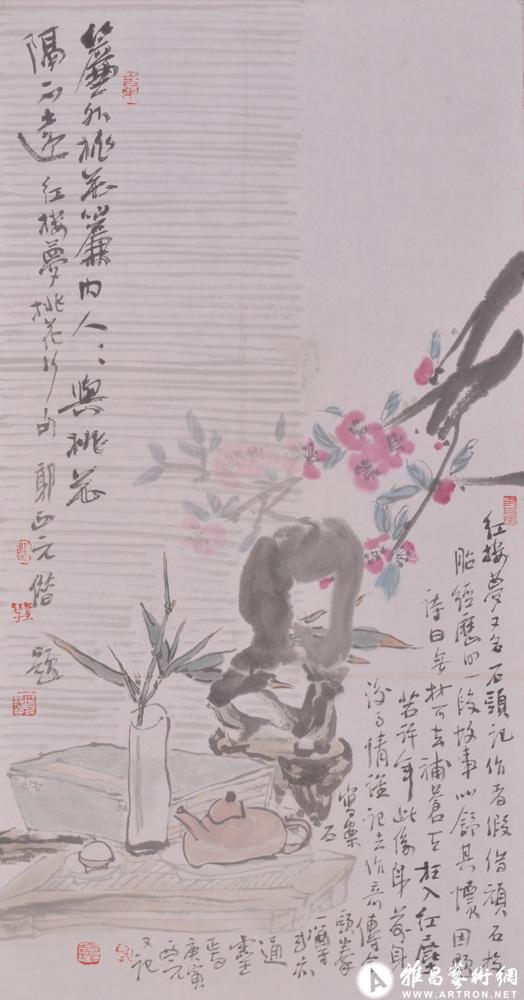 簾外桃花簾内人:與桃花
隔不遠 紅樓夢桃花行句 郭西元偕 題
紅樓夢又名石頭記作者假借頑石投
胎經歷的一段故事以舒其懷因題
詩曰無材可去補蒼天枉入紅塵
若許年此係身前身
後事倩誰記去作奇傳今
寫案
頭峯
石
通
靈玉
焉
庚寅
西元
又記
雅昌藝術網
WWW.ARTRON.NET